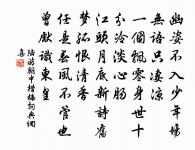 幽姿不入少年場
無語只淒涼
一個飄零身世十
分冷淡心腸
江頭月底新詩舊
夢孤恨清香
任是春風不管也
曾先識東皇
陸游朝中措梅詞典網